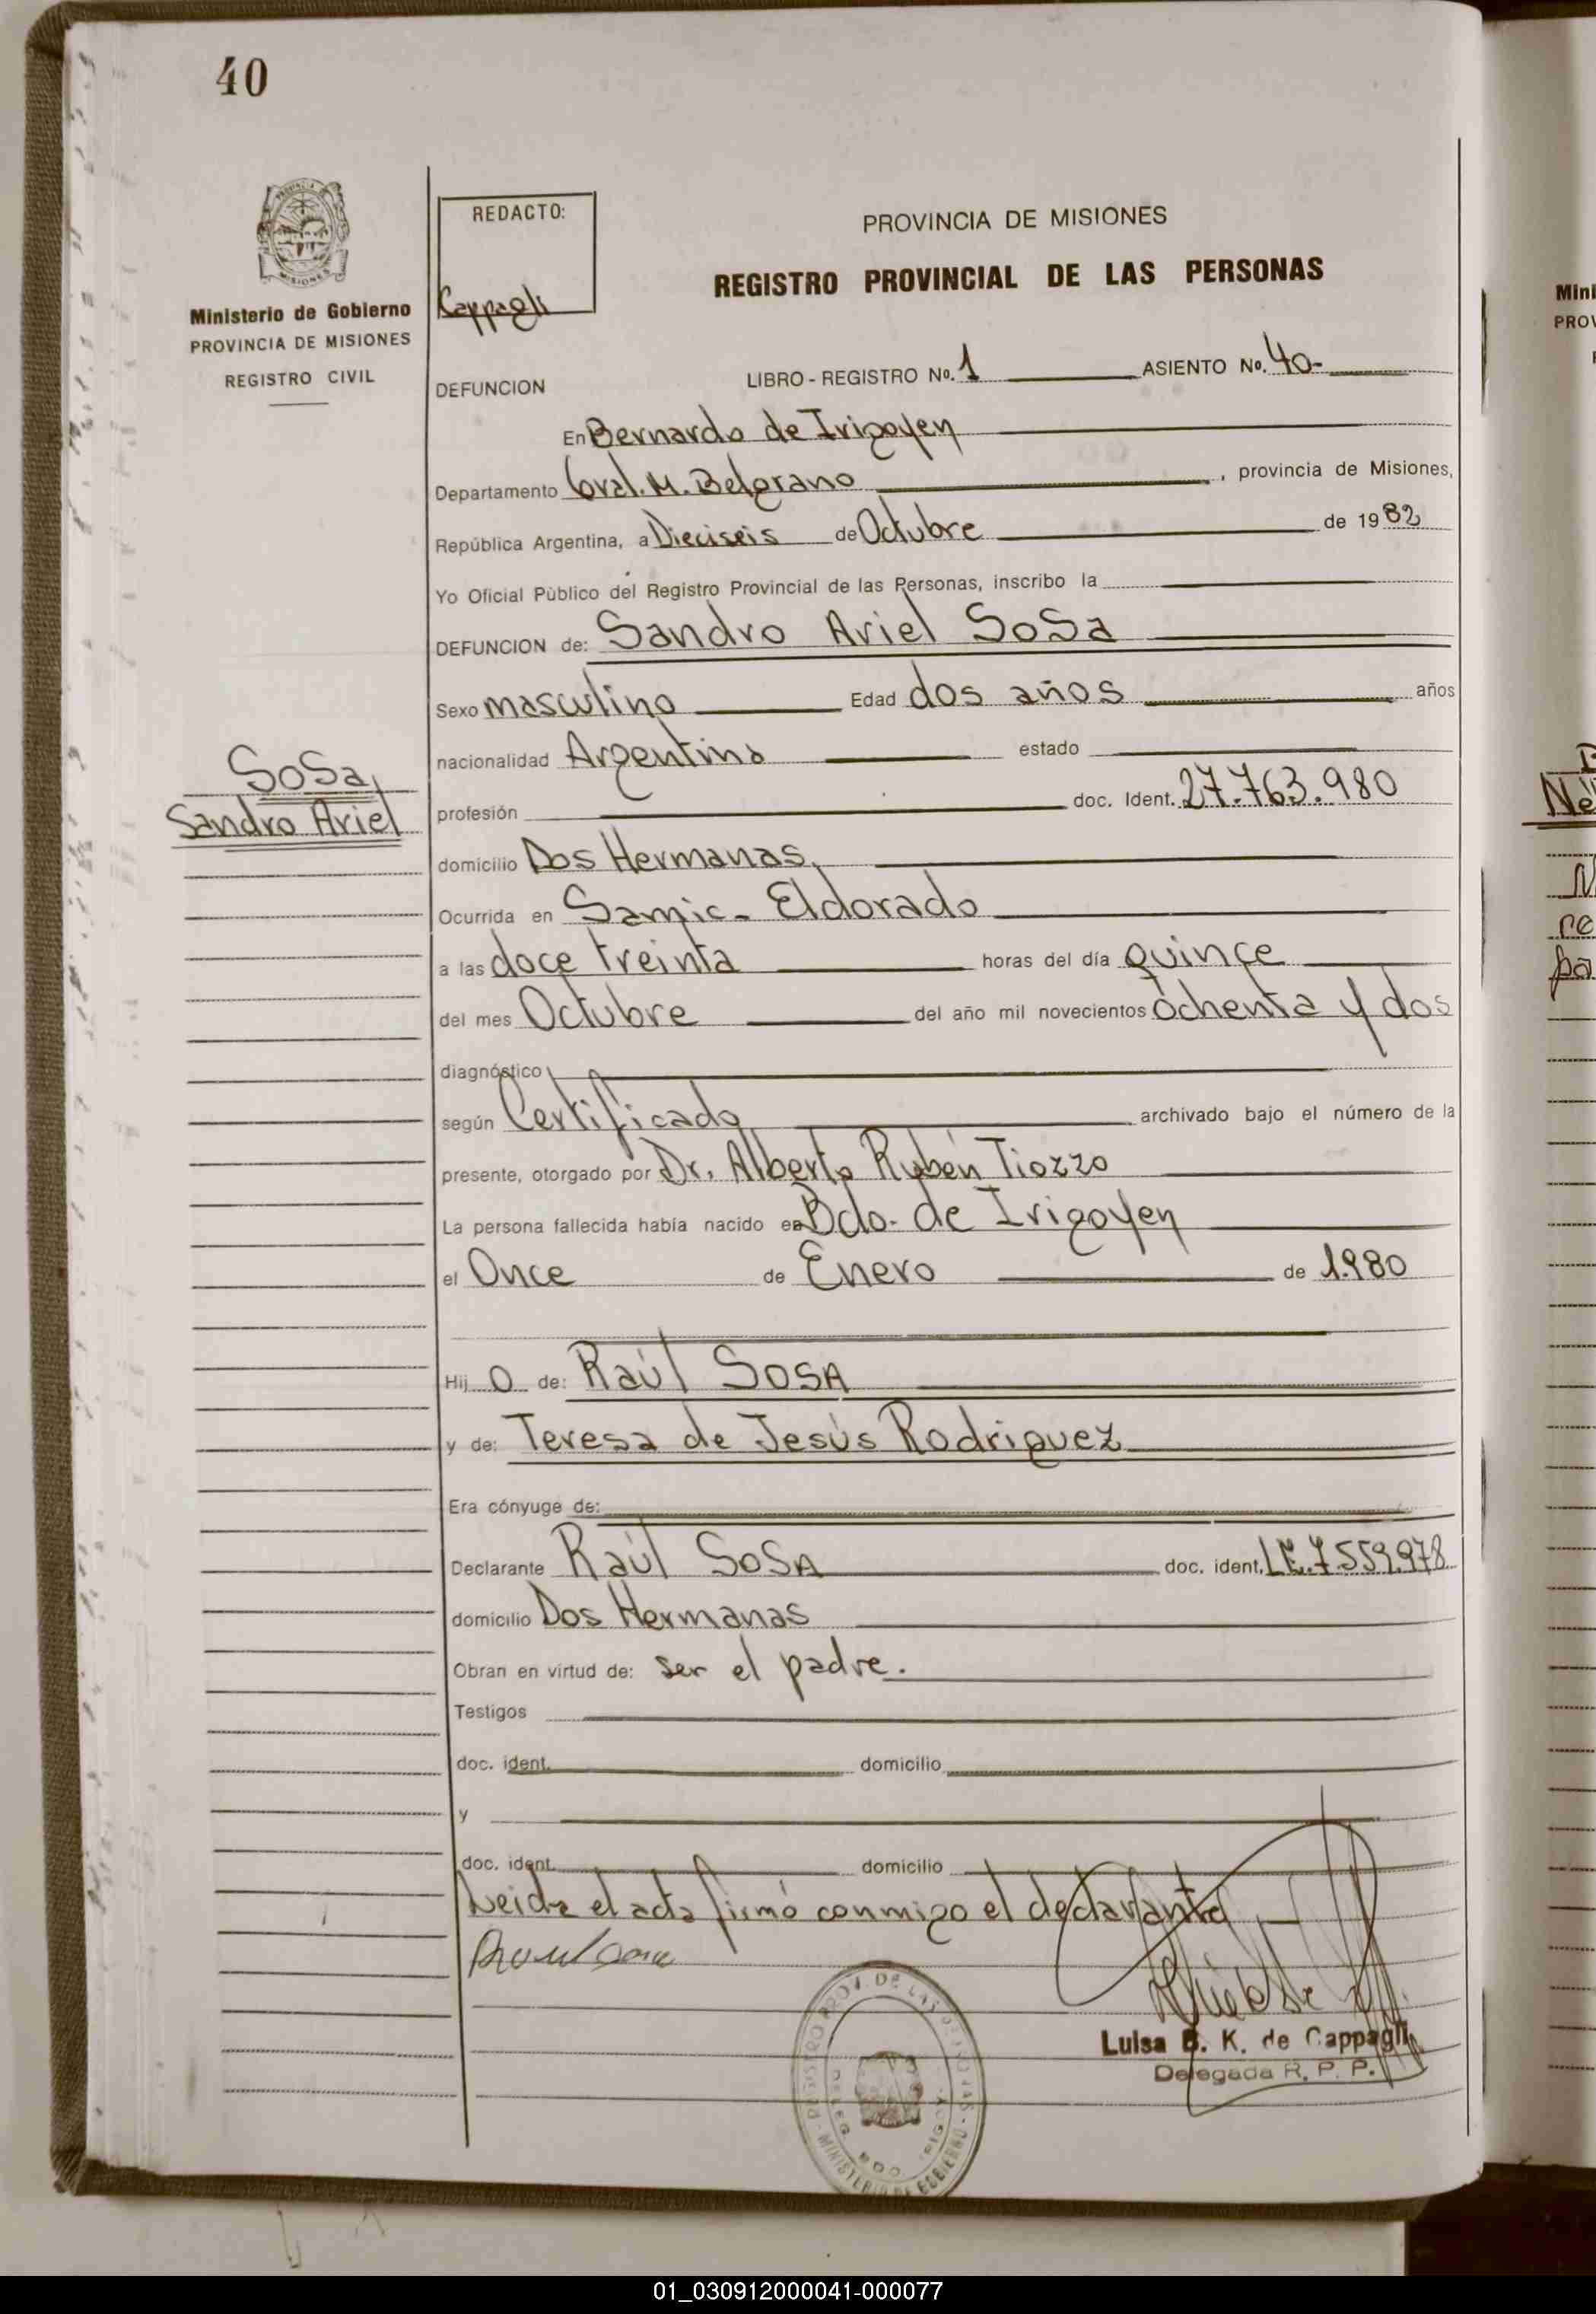 40
Ministerio de Gobierno
PROVINCIA DE MISIONES
REGISTRO CIVIL
REDACTO:
Cappagli
PROVINCIA DE MISIONES
REGISTRO PROVINCIAL DE LAS PERSONAS
DEFUNCION LIBRO - REGISTRO No. 1 ASIENTO No. 40-
En Bernardo de Irigoyen
Departamento Gral. M. Belgrano, provincia de Misiones,
República Argentina, a Dieciseis de Octubre de 1982
Yo Oficial Público del Registro Provincial de las Personas, inscribo la
DEFUNCION de: Sandro Ariel SoSa
Sexo masculino Edad dos años años
nacionalidad Argentino estado
SoSa,
Sandro Ariel
profesión doc. Ident. 27.763.980
domicilio Dos Hermanas,
Ocurrida en Samic- Eldorado
a las doce treinta horas del día quince
del mes Octubre del año mil novecientos ochenta y dos
diagnóstico
según Certificado archivado bajo el número de la
presente, otorgado por Dr. Alberto Rubén Tiozzo
La persona fallecida había nacido en Bdo. de Irigoyen
el Once de Enero de 1.980
Hij o de: Raúl SOSA
y de: Teresa de Jesús Rodriguez
Era cónyuge de:
Declarante Raúl SOSA doc. ident. L.E. 7.559.978
domicilio Dos Hermanas
Obran en virtud de: ser el padre.
Testigos
doc. ident. domicilio
y
doc. ident. domicilio
Leida el acta firmó conmigo el declarante
Luisa B. K. de Cappagli
Delegada R. P. P.
MINISTERIO DE GOBIERNO
01_030912000041-000077